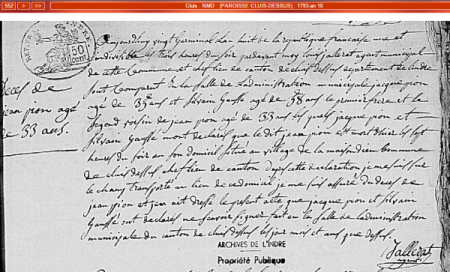 552
Cluis NMD (PAROISSE CLUIS-DESSUS) 1793-an 10
50
cent
aujourdhuy vingt germinal an huit de la republique francaise une et
indivisible trois heures du soir pardevant moy agent municipal
de cette commune et chef lieu de canton de cluis dessus departement de lindre
sont comparut en la salle de ladministration municipale jacque pion
agé de 35 ans et silvain gausse agé de 38 ans le premier frere et le
segond voisin de jean pion agé de 33 ans jacque pion et
silvain gausse mont declaré que le dit jean pion est mort dhier
heures du soir en son domicil situé au village de commune
de cluis dessus chef lieu de canton dapres cette declaration je me suis sur
le champ transporté au lieu de ce domicil je me suis assuré du deces de
jean pion et jen ait dressé le present acte que jacque pion et silvain
gaussé ont declaré ne savoir signer fait en la salle de ladministration
municipale du canton de cluis dessus les jour mois et ans que dessus
deces de
jean pion agé
de 33 ans.
agent
ARCHIVES DE L'INDRE
Propriété Publique